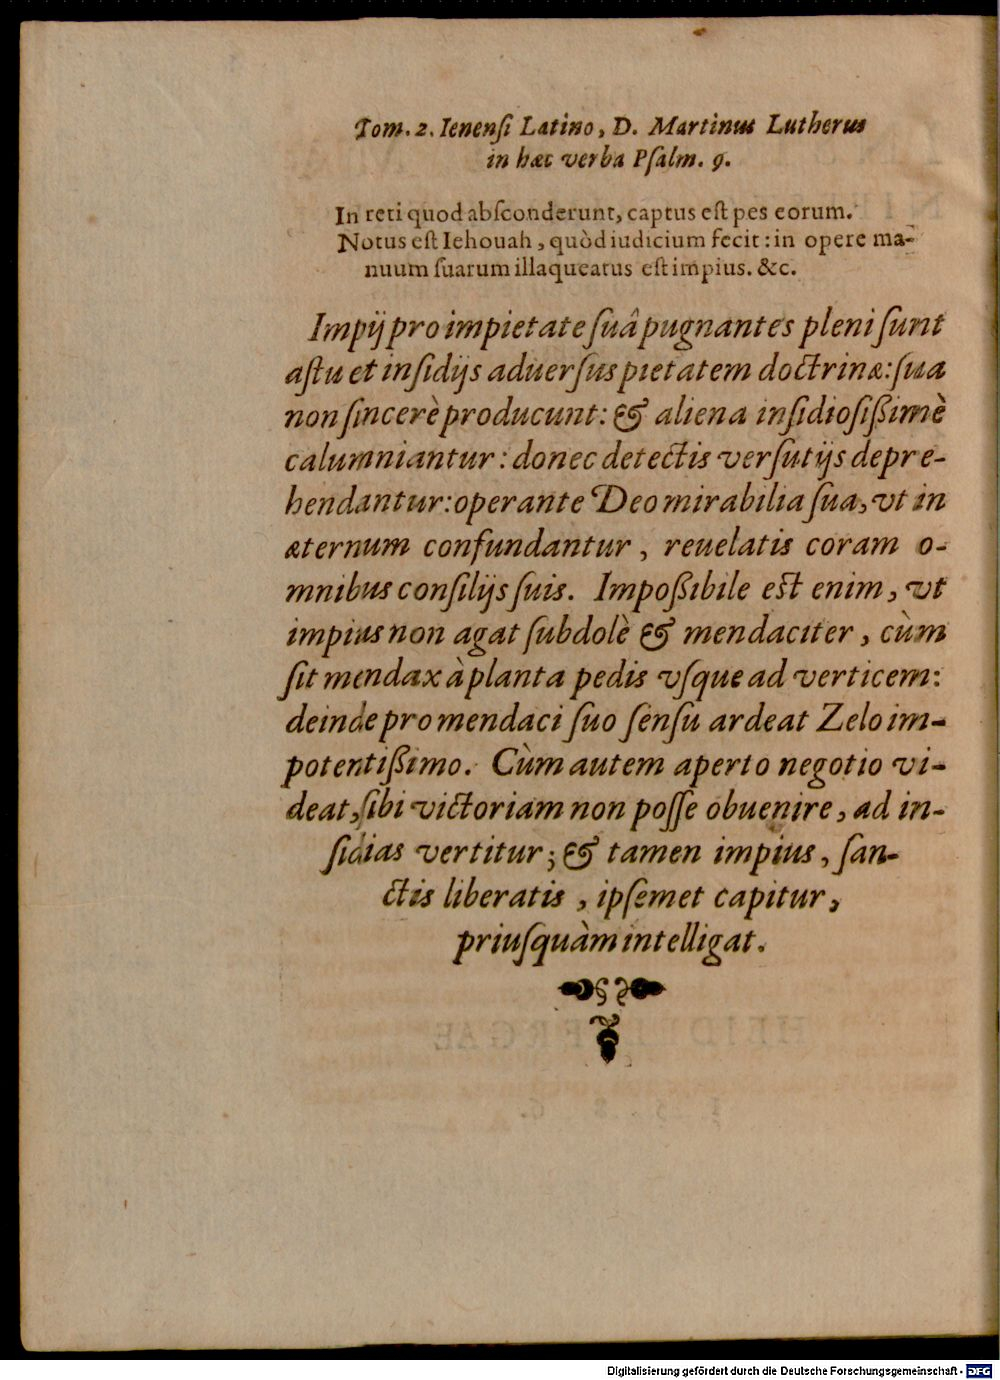 Tom. 2. Ienenſi Latino, D. Martinus Lutherus
in hæc verba Pſalm. 9.
In reti quod abſconderunt, captus eſt pes eorum.
Notus eſt Iehouah, quòd iudicium fecit: in opere ma-
nuum ſuarum illaqueatus eſt impius. &c.
Impij pro impietate ſuâ pugnantes pleni ſunt
aſtu et inſidijs aduerſus pietatem doctrinæ: ſua
non ſincerè producunt: & aliena inſidioſißimè
calumniantur: donec detectis verſutijs depre-
hendantur: operante Deo mirabilia ſua, vt in
æternum confundantur, reuelatis coram o-
mnibus conſilijs ſuis. Impoßibile est enim, vt
impius non agat ſubdolè & mendaciter, cùm
ſit mendax à planta pedis vſque ad verticem:
deinde pro mendaci ſuo ſenſu ardeat Zelo im-
potentißimo. Cùm autem aperto negotio vi-
deat, ſibi victoriam non poſſe obuenire, ad in-
ſidias vertitur; & tamen impius, ſan-
ctis liberatis, ipſemet capitur,
priuſquàm intelligat.
Digitalisierung gefördert durch die Deutsche Forschungsgemeinschaft - DFG